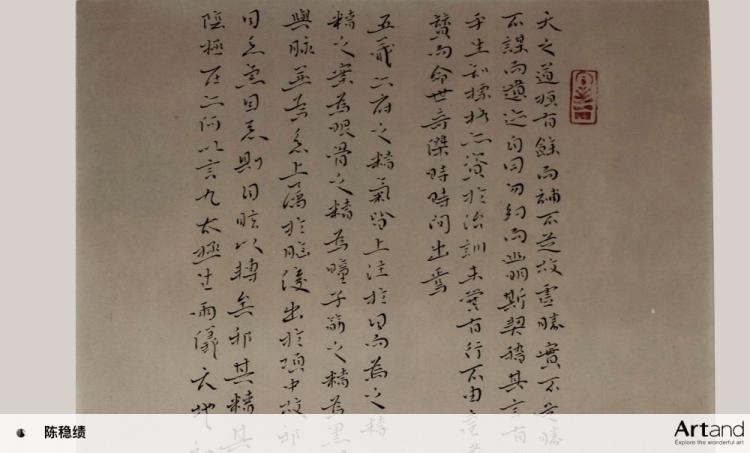 天之道損有餘而補不足故虛勝實不足勝
不謀而遐迩自同勿約而幽明斯契稽其言有
乎生知標格亦資於治訓未嘗有行不由
贊而命世奇傑時時間出焉
五藏六府之精氣皆上注於目而為之精
精之窠為眼骨之精為瞳子筋之精為黑
與脉並為系上屬於腦後出於項中故邪
目系急目急則目眩以轉矣邪其精其
陰極在六何以言九太極生兩儀天地
陈稳绩
Artand
Explore the wonderful art